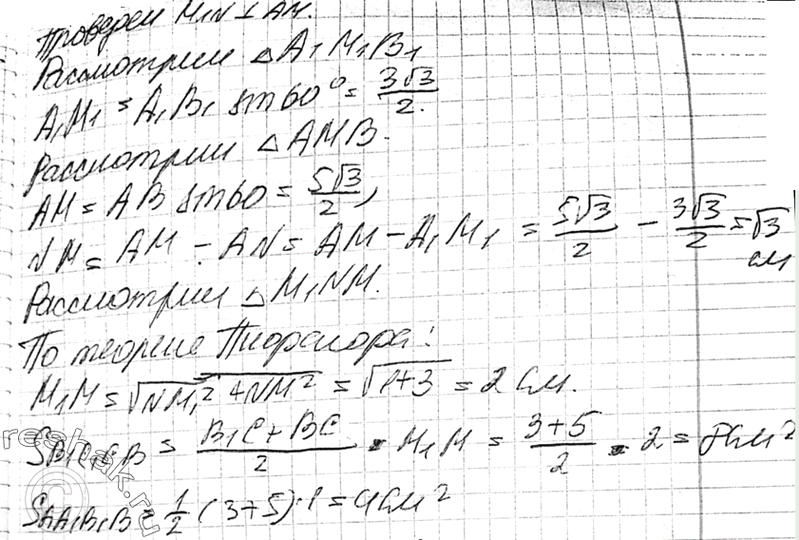 Проверем M₁N ⊥ AM.
Рассмотрим △A₁M₁B₁
A₁M₁ = A₁B₁ sin60° = 3√3/2.
Рассмотрим △AMB.
AM = AB sin60 = 5√3/2,
NM = AM - AN = AM - A₁M₁ = 5√3/2 - 3√3/2 = √3 см
Рассмотрим △M₁NM.
По теореме Пифагора:
M₁M = √NM₁² + NM² = √1+3 = 2 см.
S B₁C₁CB = B₁C + BC/2 · M₁M = 3+5/2 · 2 = 8см²
S AA₁B₁B = 1/2 (3+5)·1 = 4см²
reshak.ru